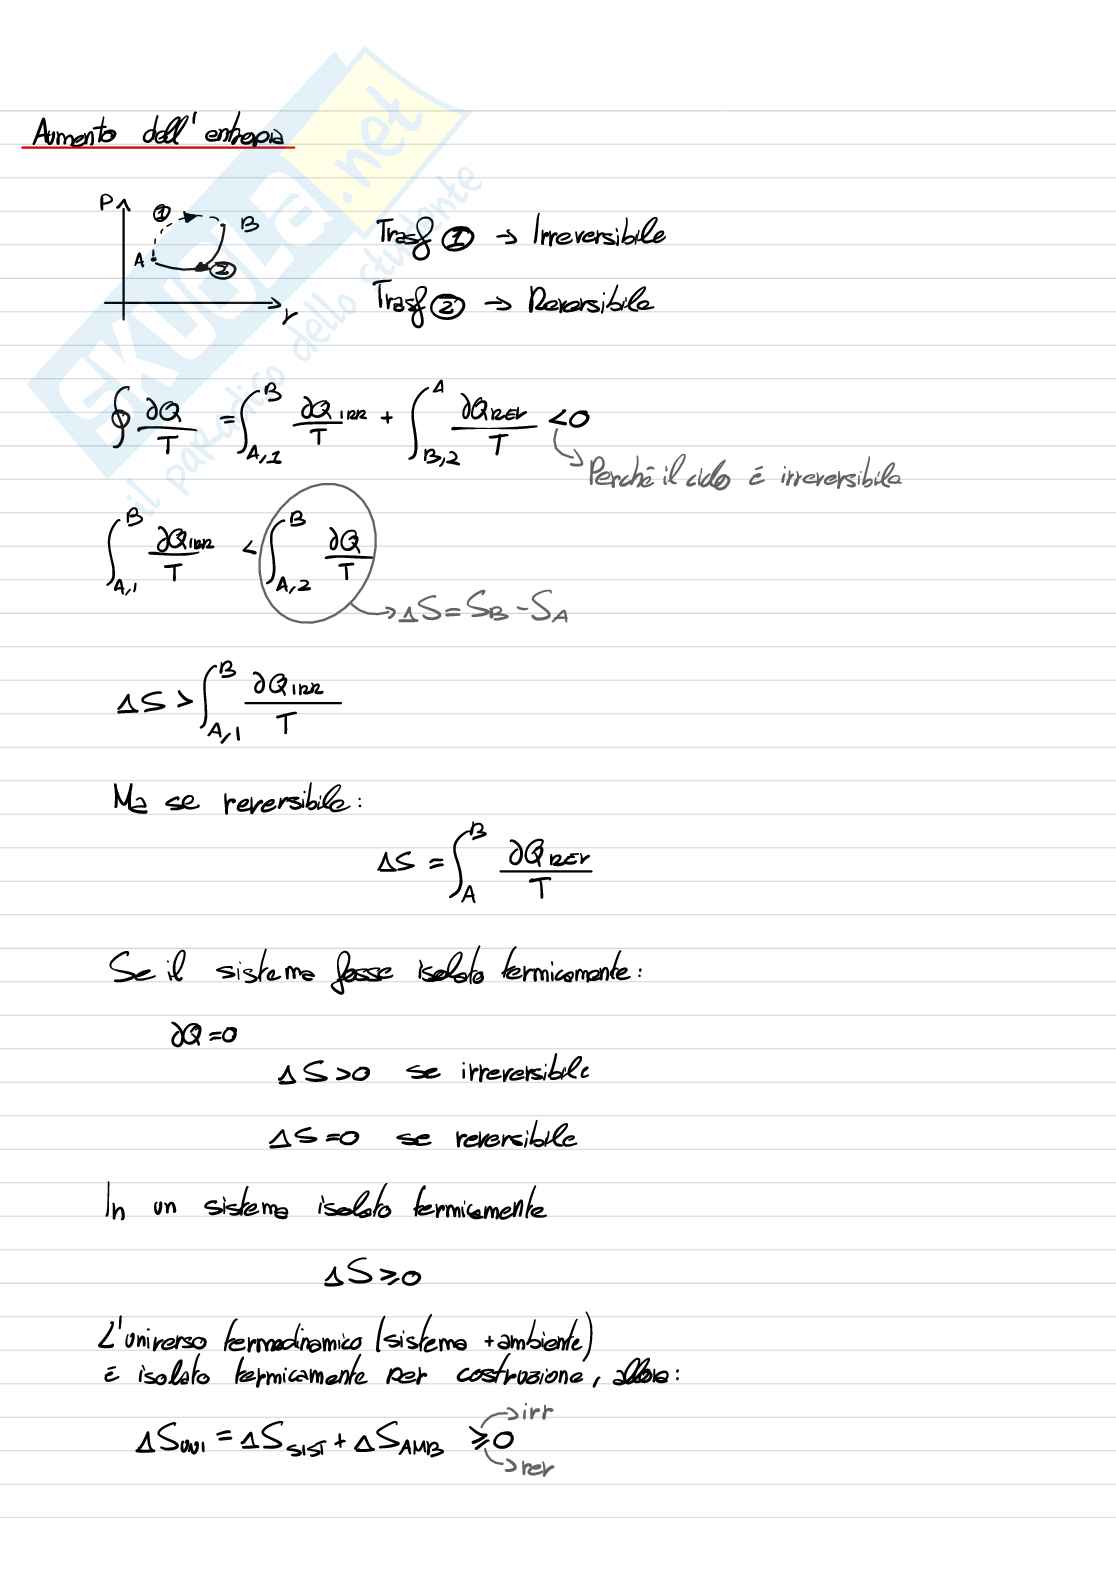 Aumento dell'entropia
P
1
B
A
2
V
Trasf 1 → Irreversibile
Trasf 2 → Reversibile
∮ ∂Q/T = ∫_{A,1}^{B} ∂Q_IRR/T + ∫_{B,2}^{A} ∂Q_REV/T < 0
Perché il ciclo è irreversibile
∫_{A,1}^{B} ∂Q_IRR/T < ∫_{A,2}^{B} ∂Q/T
→ ΔS = S_B - S_A
ΔS > ∫_{A,1}^{B} ∂Q_IRR/T
Ma se reversibile:
ΔS = ∫_{A}^{B} ∂Q_REV/T
Se il sistema fosse isolato termicamente:
∂Q = 0
ΔS > 0 se irreversibile
ΔS = 0 se reversibile
In un sistema isolato termicamente
ΔS ≥ 0
L'universo termodinamico (sistema + ambiente)
è isolato termicamente per costruzione, allora:
→ irr
ΔS_UNI = ΔS_SIST + ΔS_AMB ≥ 0
→ rev
SKUOLA.net
il paradiso dello studente